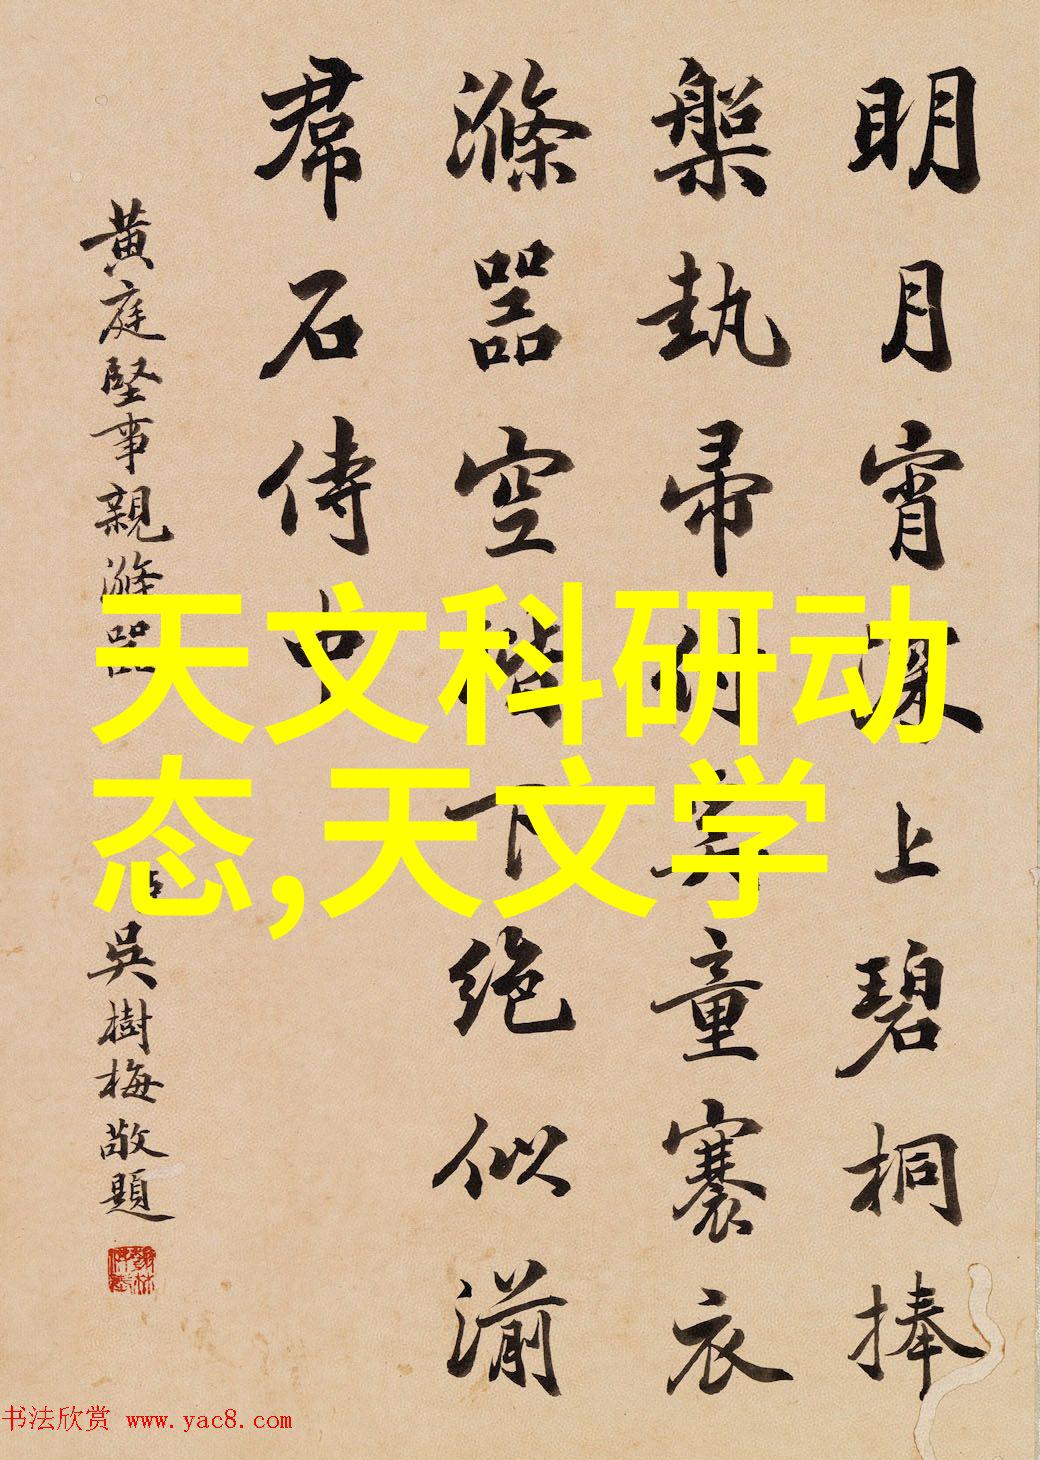 天文科研动
态,天文学
明月宵深上碧桐捧
槃執帚付奚童褰衣
滌噐空階下絶似湔
帬石侍中
黄庭堅事親滌噐
吳樹梅敬題
书法欣赏 www.yac8.com